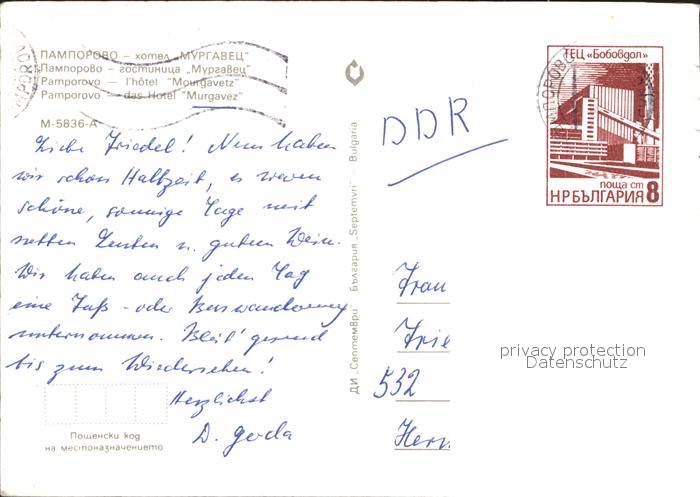 ПАМПОРОВО – хотел „МУРГАВЕЦ"
Пампорово – гостиница „Мургавец"
Pamporovo – l'hôtel "Mourgavetz"
Pamporovo – das Hotel "Murgavez"
M-5836-A
Liebe Friedel! Nun haben
wir schon Halbzeit, es waren
schöne, sonnige Tage mit
netten Leuten u. gutem Wein.
Wir haben auch jeden Tag
eine Fuß- oder Buswanderung
unternommen. Bleib' gesund
bis zum Wiedersehen!
Herzlichst
D.
Пощенски код
на местоназначението
ДИ „Септември" България „Septemvri" Bulgaria
DDR
ТЕЦ «Бобовдол»
поща ст 8
НРБЪЛГАРИЯ
Frau
Frie
532
Herr
privacy protection
Datenschutz